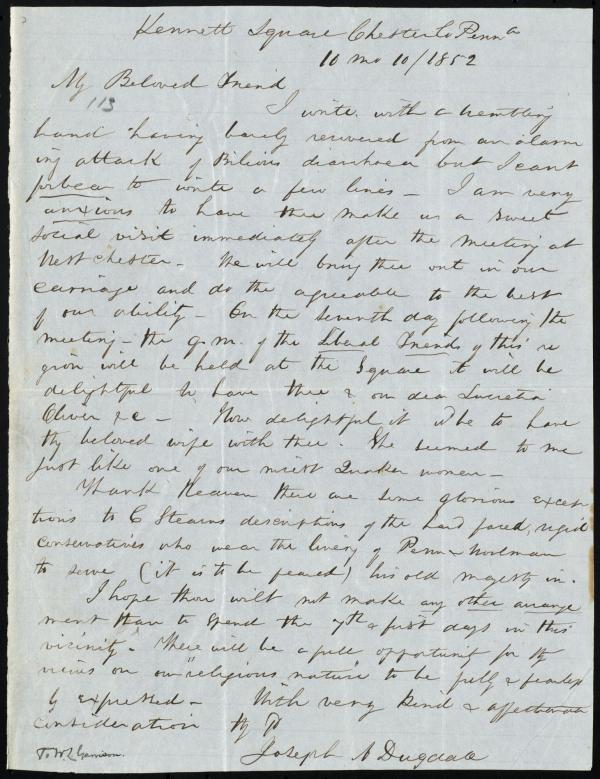 Kennett Square Chester Co Penna
10 mo 10/1852
My Beloved Friend
113
I write with a trembling
hand having barely recovered from an alarm
ing attack of Bilious diarrhoea but I cant
forbear to write a few lines – I am very
anxious to have thee make us a sweet
social visit immediately after the meeting at
West Chester – We will bring thee out in our
carriage and do the agreeable to the best
of our ability – On the seventh day following the
meeting – the q.m. of the Liberal Friends of this re
gion will be held at the Square it will be
delightful to have thee & our dear Lucretia
Oliver &c – How delightful it wd be to have
thy beloved wife with thee. She seemed to me
just like one of our nicest Quaker women –
Thank Heaven there are some glorious excep
tions to C Stearns descriptions of the hard faced, rigid
conservatives who wear the livery of Penn & Woolman
to serve (it is to be feared) his old majesty in.
I hope thou wilt not make any other arrange
ment than to spend the 7th & first days in this
vicinity. There will be a full opportunity for thy
views on our "religious nature" to be fully & fearless
ly expressed – With very kind & affectionate
consideration thy Fd
Joseph A Dugdale
To W L Garrison.